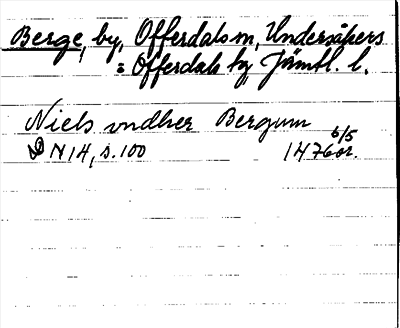 Berge, by, Offerdals sn, Undersåkers
= Offerdals tg Jämtl. l.
Niels vndher Bergum
DN 14, s. 100 6/5 1476 or.